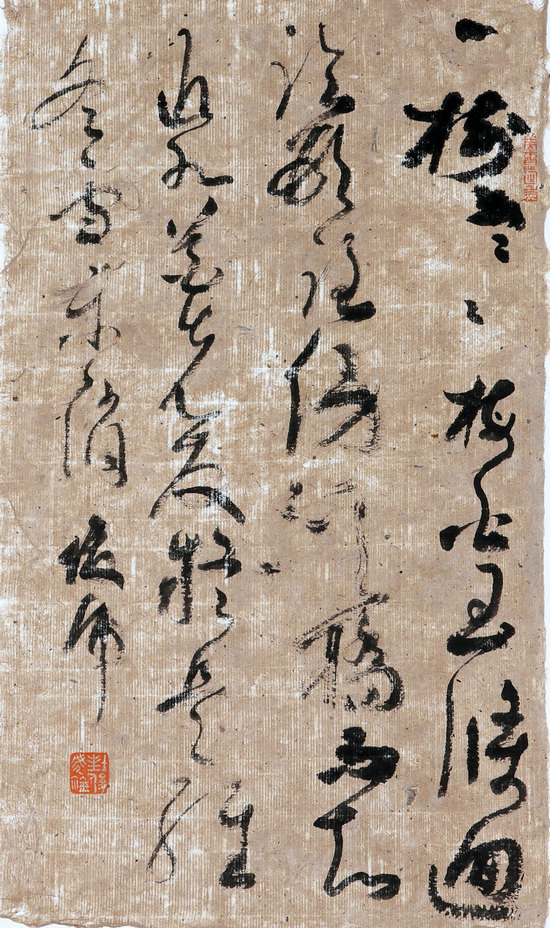 一樹寒梅白玉條迥
臨村路傍溪橋不知
近水花先發疑是經
冬雪未銷